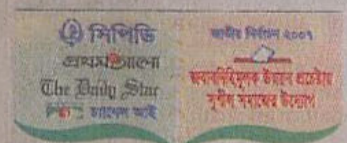 সিপিডি
প্রথম আলো
The Daily Star
চ্যানেল আই
জাতীয় নির্বাচন ২০০৭
জবাবদিহিমূলক উন্নয়ন প্রচেষ্টায়
সুশীল সমাজের উদ্যোগ